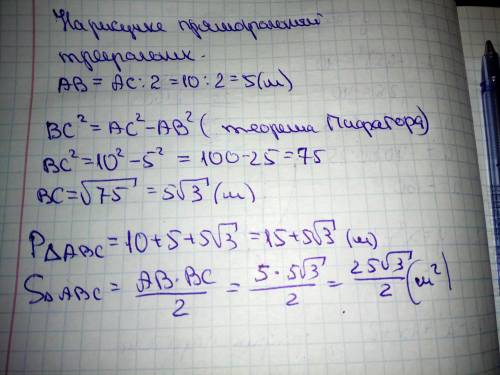 На рисунке прямоугольный
треугольник.
AB = AC : 2 = 10 : 2 = 5 (м)
BC² = AC² - AB² ( теорема Пифагора)
BC² = 10² - 5² = 100 - 25 = 75
BC = √75 = 5√3 (м)
P△ABC = 10 + 5 + 5√3 = 15 + 5√3 (м)
S△ABC = AB · BC / 2 = 5 · 5√3 / 2 = 25√3 / 2 (м²)